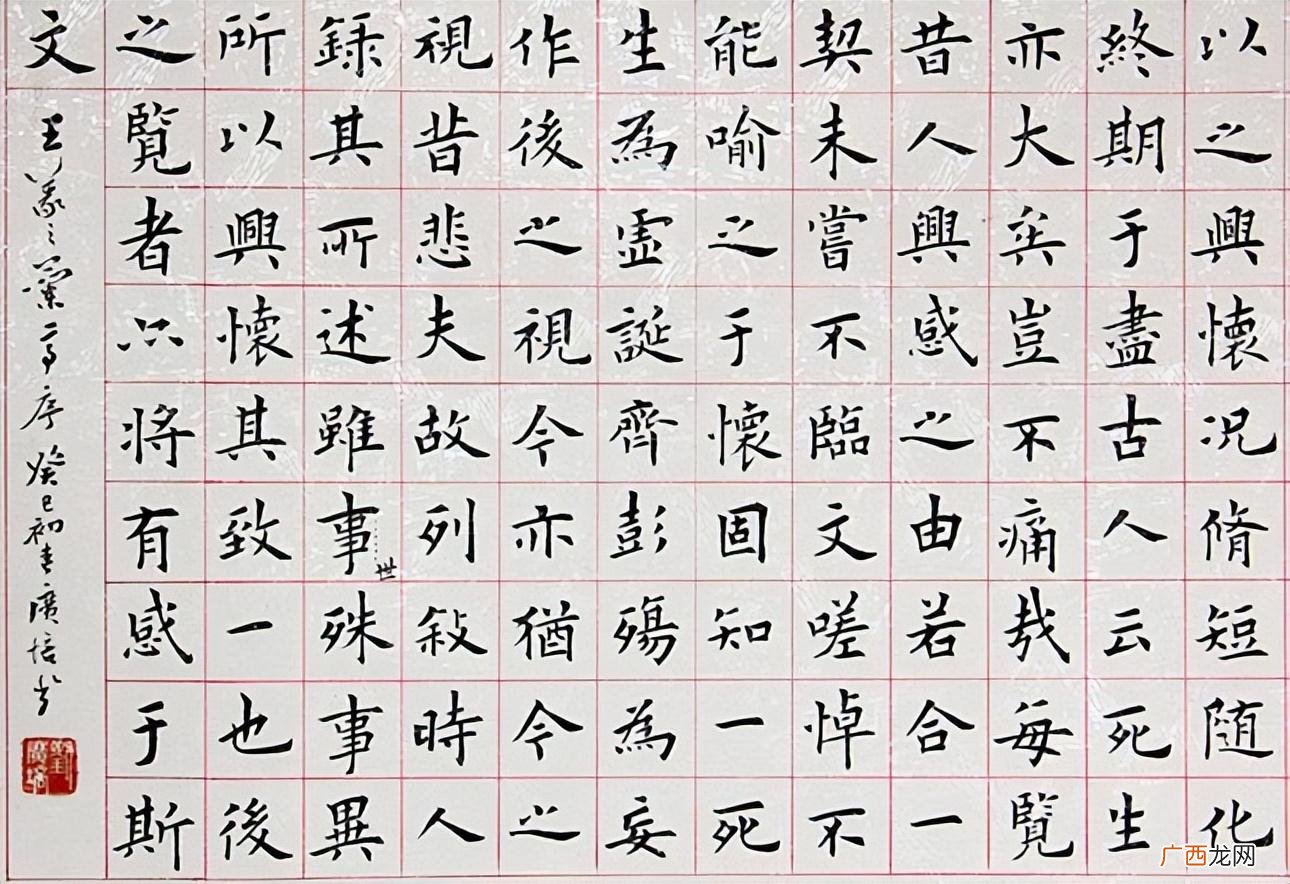 以之興懷况脩短随化
終期于盡古人云死生
亦大矣豈不痛哉每覽
昔人興感之由若合一
契未嘗不臨文嗟悼不
能喻之于懷固知一死
生為虛誕齊彭殤為妄
作後之視今亦猶今之
視昔悲夫故列敘時人
錄其所述雖事殊事異
世
所以興懷其致一也後
之覽者只将有感于斯
文
王羲之蘭亭序癸巳初春廣培书
广西龙网